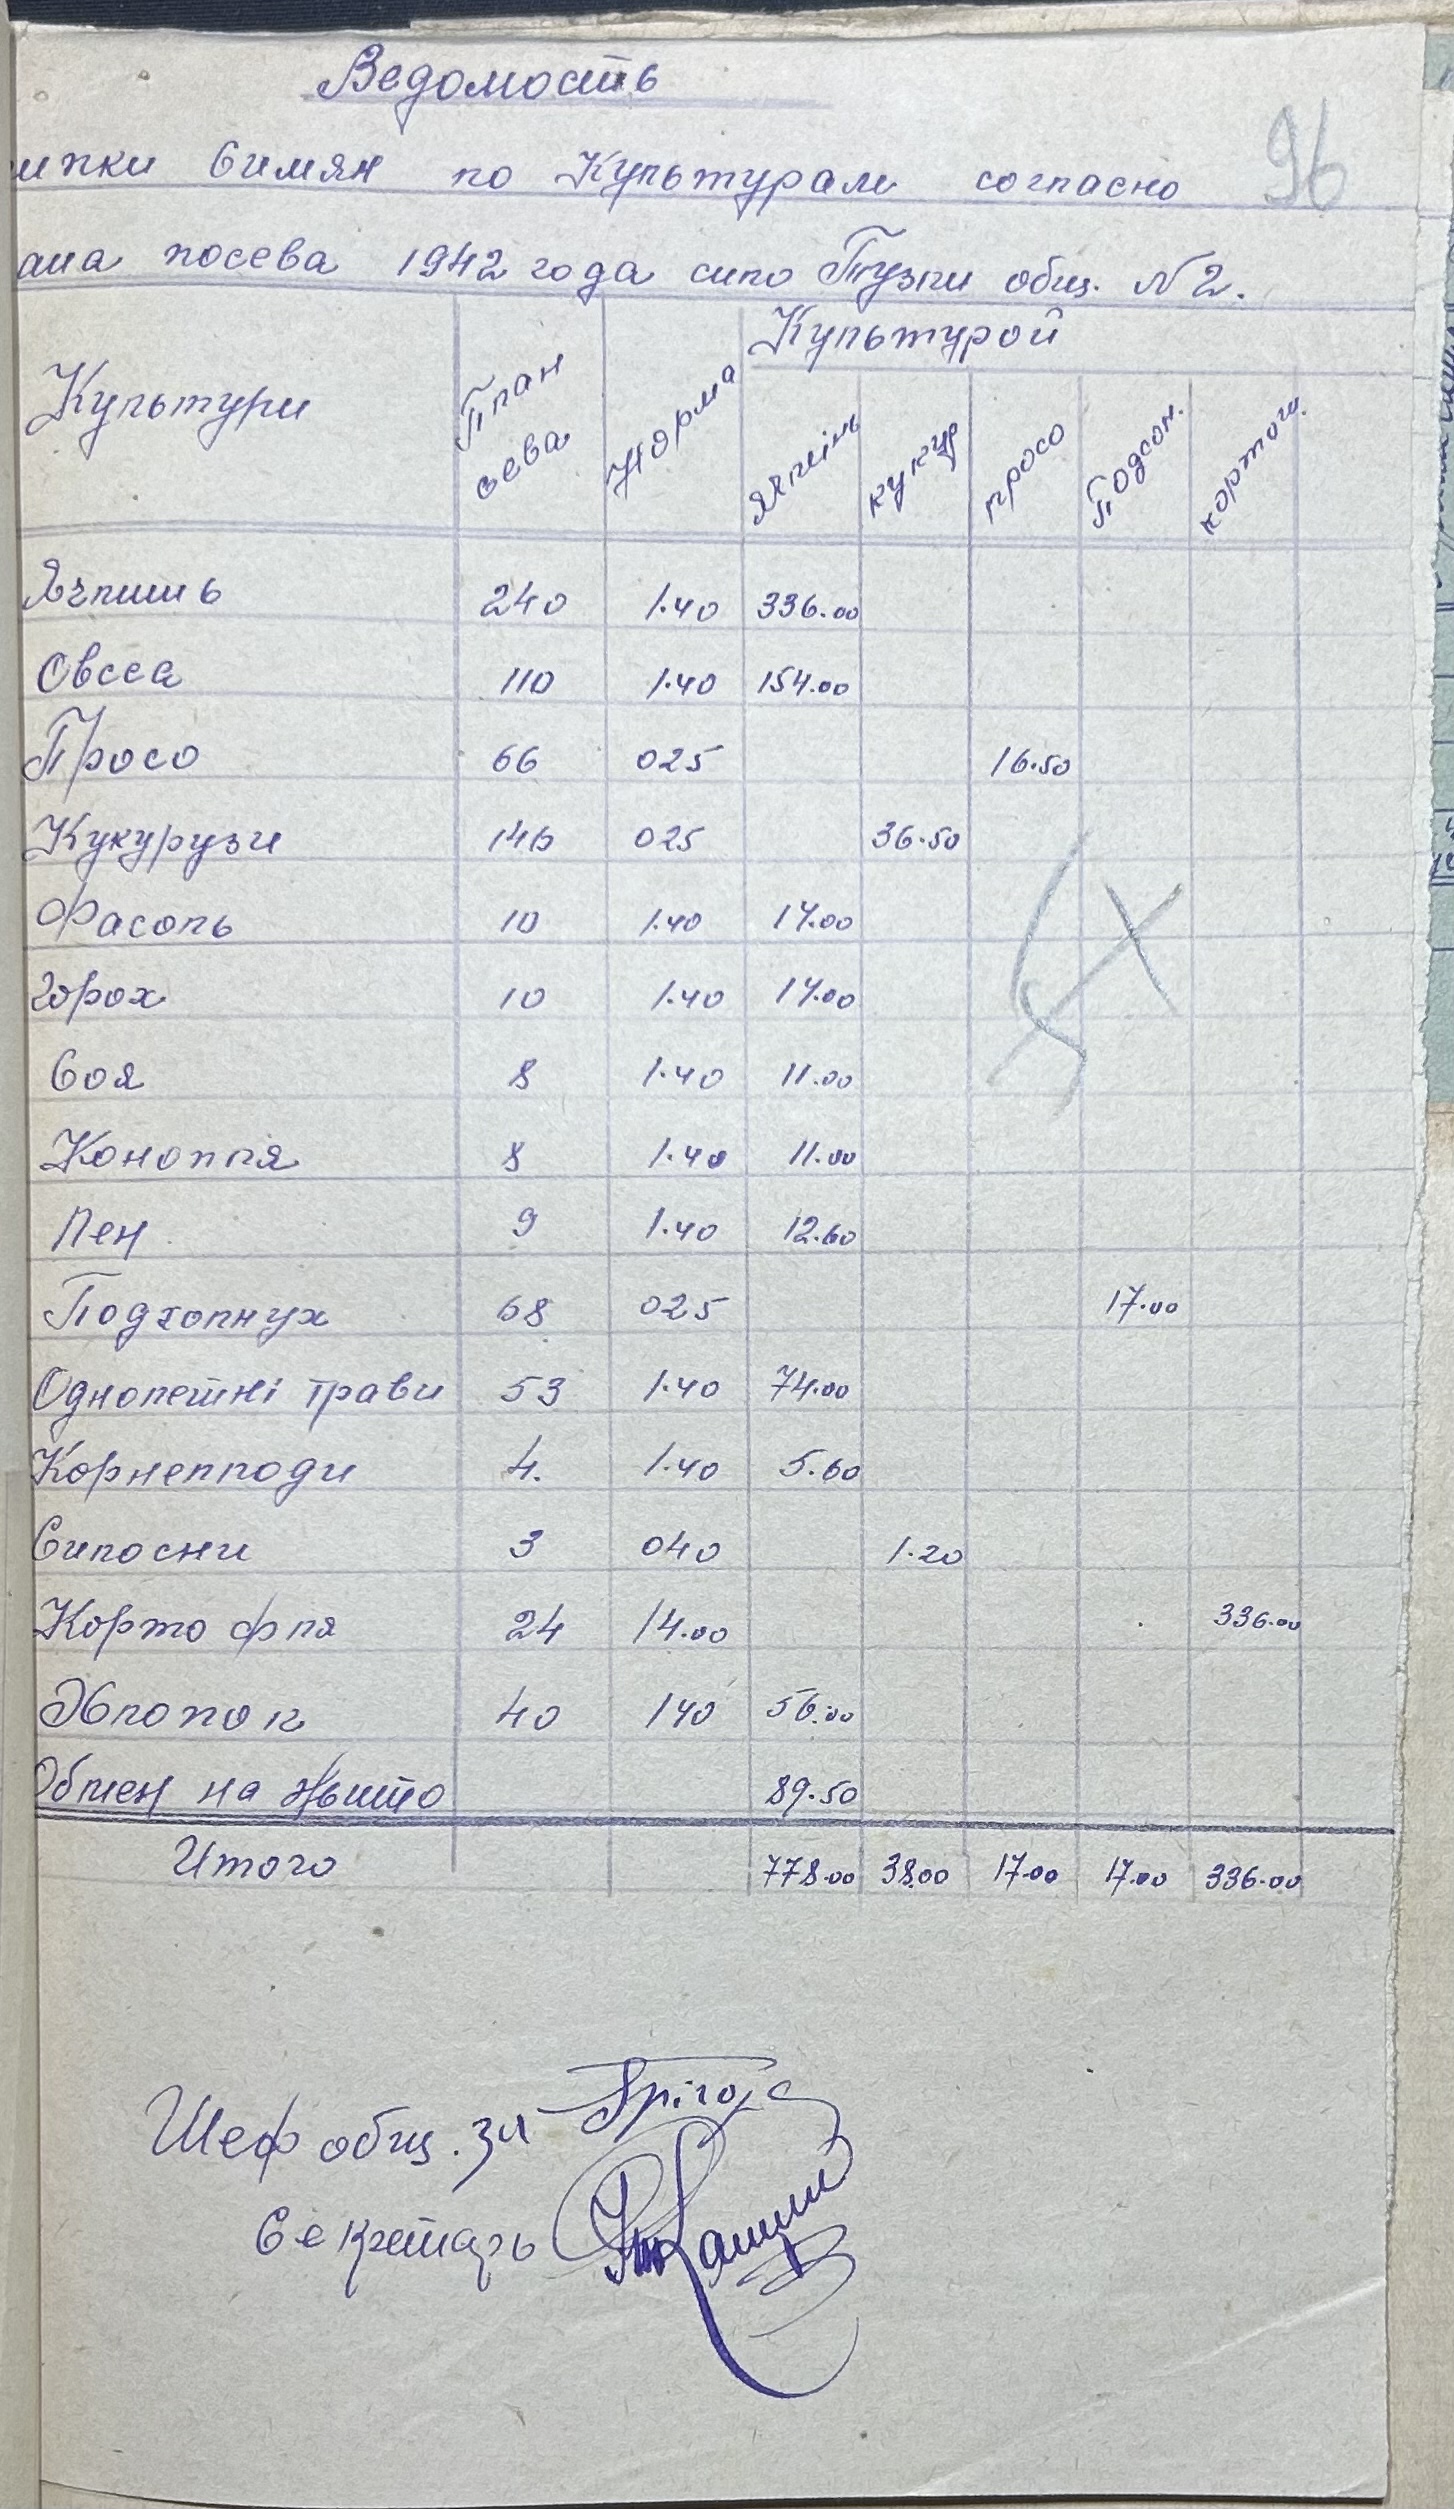 Ведомость
96
ипки Симян по Культурам согласно
ана посева 1942 года сило Тузли общ. N 2.
Культури План сева Норма Культурой
Ячмінь кукур просо Подсон. картош.
Ячминь 240 1.40 336.00
Овсса 110 1.40 154.00
Просо 66 025 16.50
Кукурузи 146 025 36.50
Фасоль 10 1.40 14.00
Горох 10 1.40 14.00
Соя 8 1.40 11.00
Конопля 8 1.40 11.00
Лен 9 1.40 12.60
Подсолнух 68 025 17.00
Однолетні трави 53 1.40 74.00
Корнеплоди 4. 1.40 5.60
Силосни 3 040 1.20
Картофля 24 14.00 336.00
Хлопок 40 140 56.00
Обмен на жыто 89.50
Итого 778.00 38.00 17.00 17.00 336.00
Шеф общ. за
Секретарь